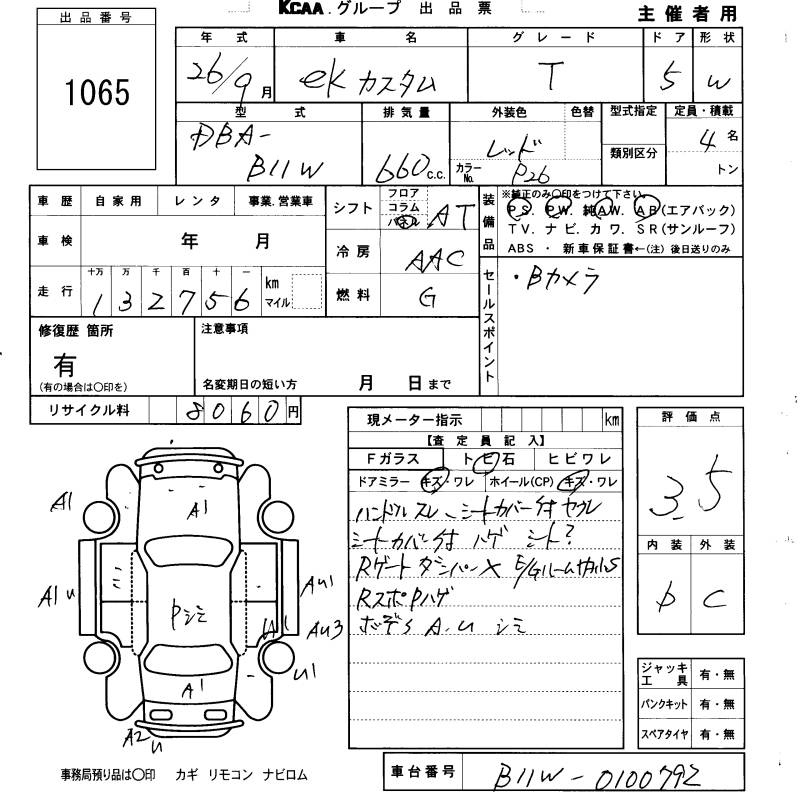 KCAA.グループ 出品票
主催者用
出品番号
1065
年式 車名 グレード ドア 形状
26/9月 ekカスタム T 5 W
型式 排気量 外装色 色替 型式指定 定員・積載
DBA-
B11W 660c.c. レッド カラーNo. P26 類別区分 4名
トン
車歴 自家用 レンタ 事業.営業車
シフト フロア コラム パネル AT
装備品 ※純正のみ〇印をつけて下さい。
PS. PW. 純AW. AB(エアバック)
TV. ナビ. カワ. SR(サンルーフ)
ABS ・ 新車保証書←(注) 後日送りのみ
車検 年 月
冷房 AAC
走行 十万 万 千 百 十 一
132756 km マイル
燃料 G
セールスポイント ・Bカメラ
修復歴 箇所
有
(有の場合は〇印を)
注意事項
名変期日の短い方 月 日まで
リサイクル料 8060円
現メーター指示 km
【査定員記入】
Fガラス トビ石 ヒビワレ
ドアミラー キズ・ワレ ホイール(CP) キズ・ワレ
ハンドルスレ シートカバー付 ヤブレ
シートカバー付 ハゲ シート?
Rゲートダンパー×
RスポPハゲ
A.U シミ
評価点
3.5
内装 外装
D C
ジャッキ工具 有・無
パンクキット 有・無
スペアタイヤ 有・無
A1
A1
A1U
AU1
Pシミ
A1
AU3
U1
A1
A2U
事務局預り品は〇印 カギ リモコン ナビロム
車台番号 B11W-0100792